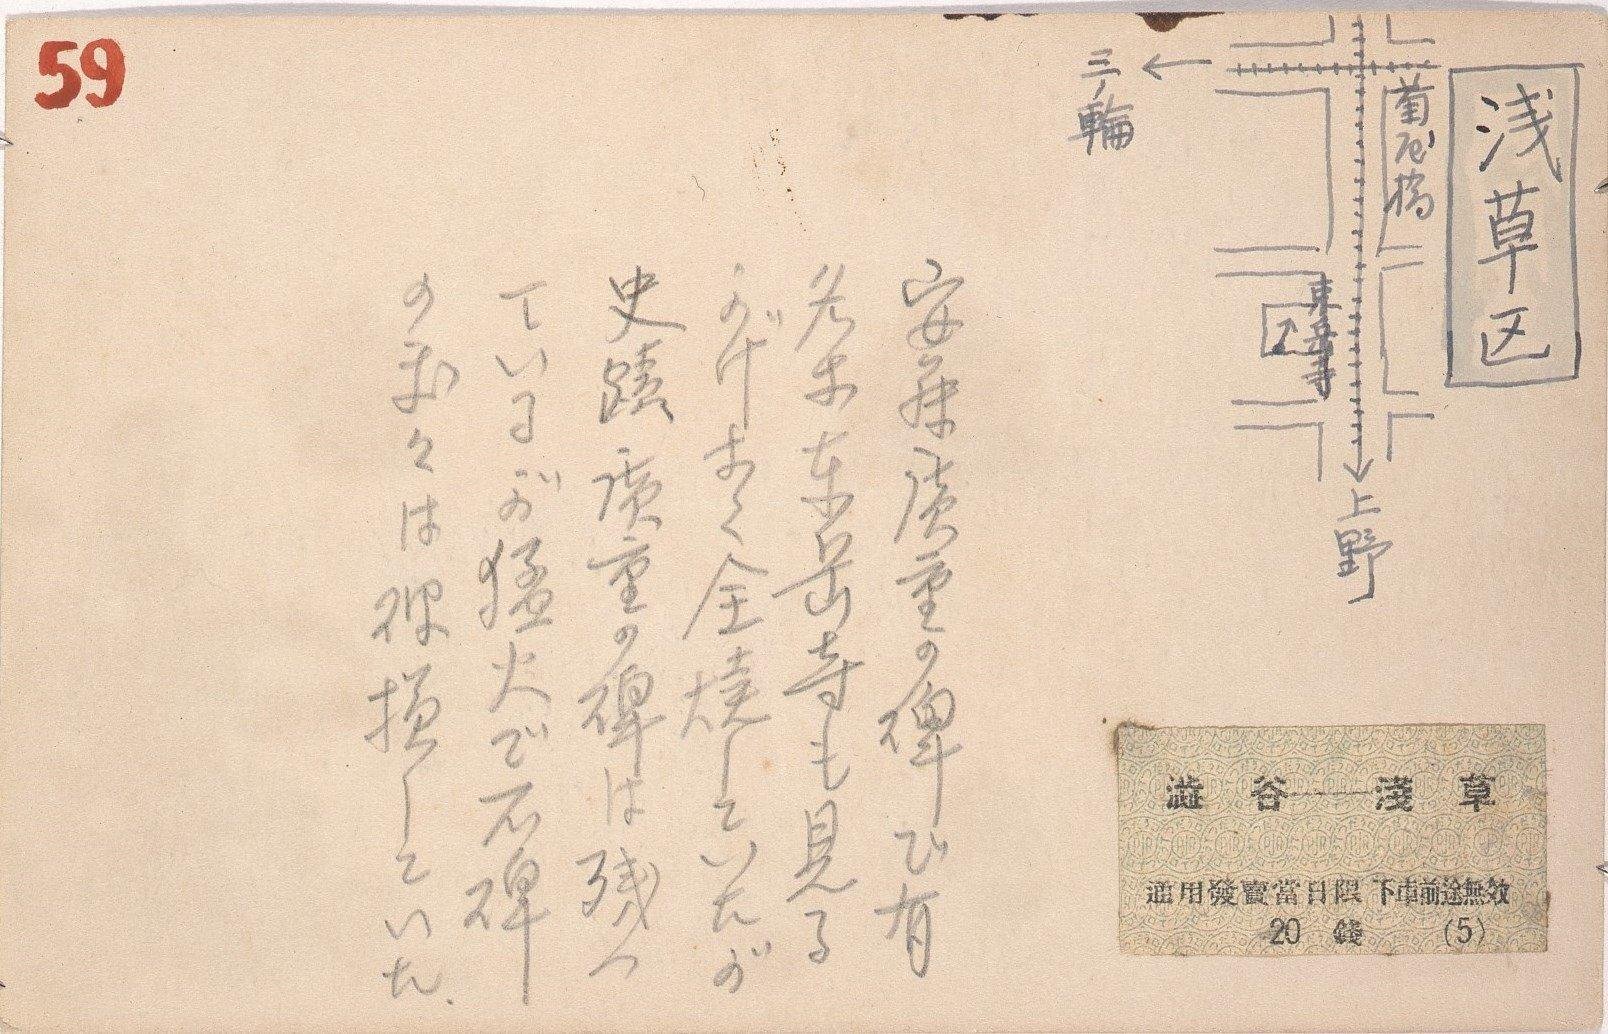 59
浅草区
菊屋橋
三ノ輪
東岳寺
上野
安藤廣重の碑で有
名な東岳寺も見る
かげなく全焼していたが
史蹟廣重の碑は残つ
ているが猛火で石碑
の所々は破損していた.
澁谷――淺草
通用發賣當日限 下車前途無效
20 錢 (5)